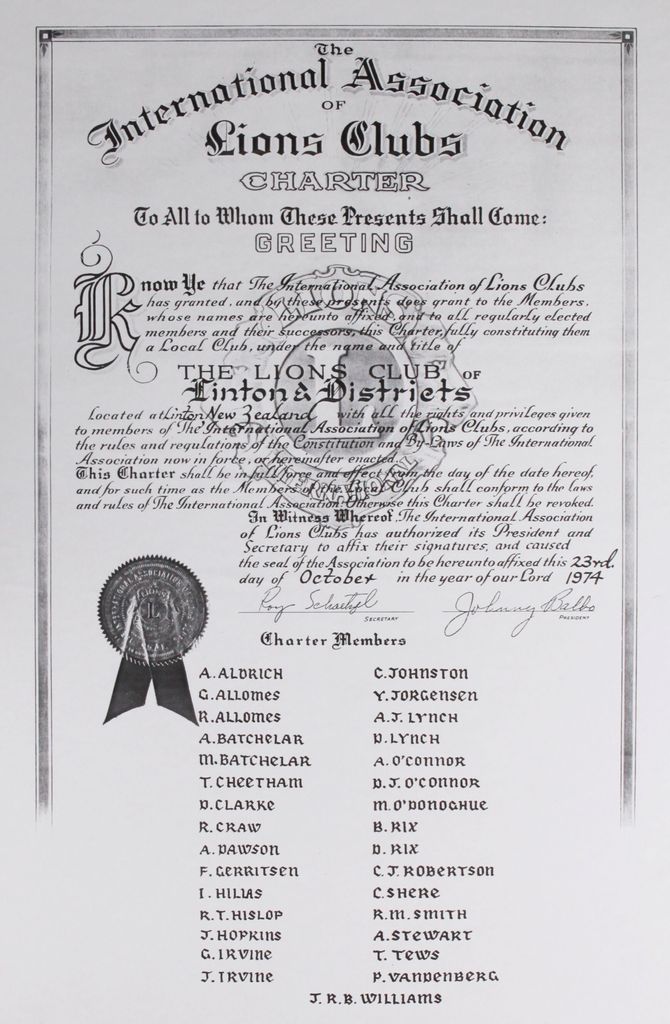 The
International Association
OF
Lions Clubs
CHARTER
To All to Whom These Presents Shall Come:
GREETING
Know Ye that The International Association of Lions Clubs
has granted, and by these presents does grant to the Members,
whose names are hereunto affixed, and to all regularly elected
members and their successors, this Charter, fully constituting them
a Local Club, under the name and title of
THE LIONS CLUB OF
Linton & Districts
Located at Linton New Zealand with all the rights and privileges given
to members of The International Association of Lions Clubs, according to
the rules and regulations of the Constitution and By-Laws of The International
Association now in force, or hereinafter enacted.
This Charter shall be in full force and effect from the day of the date hereof,
and for such time as the Members of the Local Club shall conform to the laws
and rules of The International Association. Otherwise this Charter shall be revoked.
In Witness Whereof, The International Association
of Lions Clubs has authorized its President and
Secretary to affix their signatures, and caused
the seal of the Association to be hereunto affixed this 23rd.
day of October in the year of our Lord 1974
Roy Schaetzel Johnny Balbo
SECRETARY PRESIDENT
Charter Members
A. ALDRICH C. JOHNSTON
G. ALLOMES Y. JORGENSEN
R. ALLOMES A. J. LYNCH
A. BATCHELAR D. LYNCH
M. BATCHELAR A. O'CONNOR
T. CHEETHAM D. J. O'CONNOR
D. CLARKE M. O'DONOGHUE
R. CRAW B. RIX
A. DAWSON D. RIX
F. GERRITSEN C. J. ROBERTSON
I. HILIAS C. SHERE
R. T. HISLOP R. M. SMITH
J. HOPKINS A. STEWART
G. IRVINE T. TEWS
J. IRVINE P. VANDENBERG
J. R. B. WILLIAMS